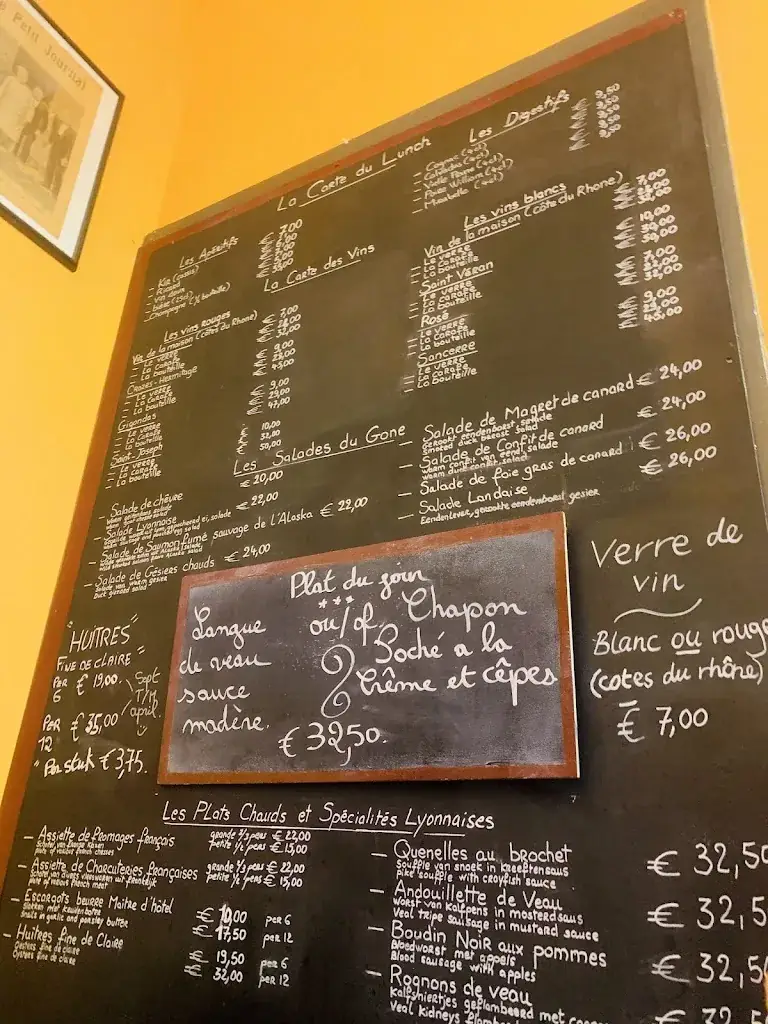 Petit Journal
La Carte du Lunch
Les Digestifs
- Cognac (4cl)
- Calvados (4cl)
- Vielle Prune (4cl)
- Poire William (4cl)
- Mirabelle (4cl)
9,50
9,50
9,50
9,50
Les Apéritifs
- Kir (cassis)
- Ricard
- Vin doux
- Champagne (½ bouteille)
7,00
La Carte des Vins
Les vins rouges
Vin de la maison (côtes du Rhone)
- Le verre
- La carafe
- La bouteille
7,00
Crozes-Hermitage
- Le verre
- La carafe
- La bouteille
9,00
45,00
Gigondas
- Le verre
- La carafe
- La bouteille
9,00
29,00
47,00
Saint-Joseph
- Le verre
- La carafe
- La bouteille
10,00
32,00
50,00
Les vins blancs
Vin de la maison (côte du Rhone)
- Le verre
- La carafe
- La bouteille
7,00
Saint Véran
- Le verre
- La carafe
- La bouteille
10,00
Rosé
- Le verre
- La carafe
- La bouteille
7,00
Sancerre
- Le verre
- La carafe
- La bouteille
9,00
45,00
Les Salades du Gone
- Salade de chèvre € 20,00
- Salade Lyonnaise € 22,00
- Salade de Saumon fumé sauvage de l'Alaska € 22,00
- Salade de Gésiers chauds € 24,00
Salade van warm gesier
Duck gizzard salad
- Salade de Magret de canard € 24,00
Gerookt eendenborst salade
Smoked duck breast salad
- Salade de Confit de canard € 24,00
warm duck confit salad
- Salade de foie gras de canard € 26,00
- Salade Landaise € 26,00
Eendenlever, gerookte eendenborst gesier
Plat du jour
***
Langue
de veau
sauce
madère.
ou/of
Chapon
Poché a la
Crême et cêpes
€ 32,50.
Verre de
vin
Blanc ou rouge
(cotes du rhône)
€ 7,00
"HUITRES"
FINE DE CLAIRE
PER
6
€ 19,00
Sept
T/M
april
PER
12
€ 35,00
"Per stuk € 3,75.
Les Plats Chauds et Spécialités Lyonnaises
- Assiette de Fromages français
Schotel van Franse Kazen
plate of various french cheeses
grande 2/3 pers € 22,00
petite ½ pers € 15,00
- Assiette de Charcuteries Françaises
plate of various french meat
grande 2/3 pers € 22,00
petite ½ pers € 15,00
- Escargots beurre Maitre d'hôtel
Slakken met kruidenboter
Snails in garlic and parsley butter
€ 10,00 per 6
€ 17,50 per 12
- Huitres fine de Claire
Oesters fine de claire
Oysters fine de claire
€ 19,50 per 6
€ 32,00 per 12
- Quenelles au brochet
Souffle van snoek in kreeftensaus
pike souffle with crayfish sauce
€ 32,50
- Andouillette de Veau
worst van kalfpens in mosterdsaus
Veal tripe sausage in mustard sauce
€ 32,5
- Boudin Noir aux pommes
Bloedworst met appels
Blood sausage with apples
€ 32,5
- Rognons de veau
Kalfsniertjes geflambeerd met
Veal kidneys